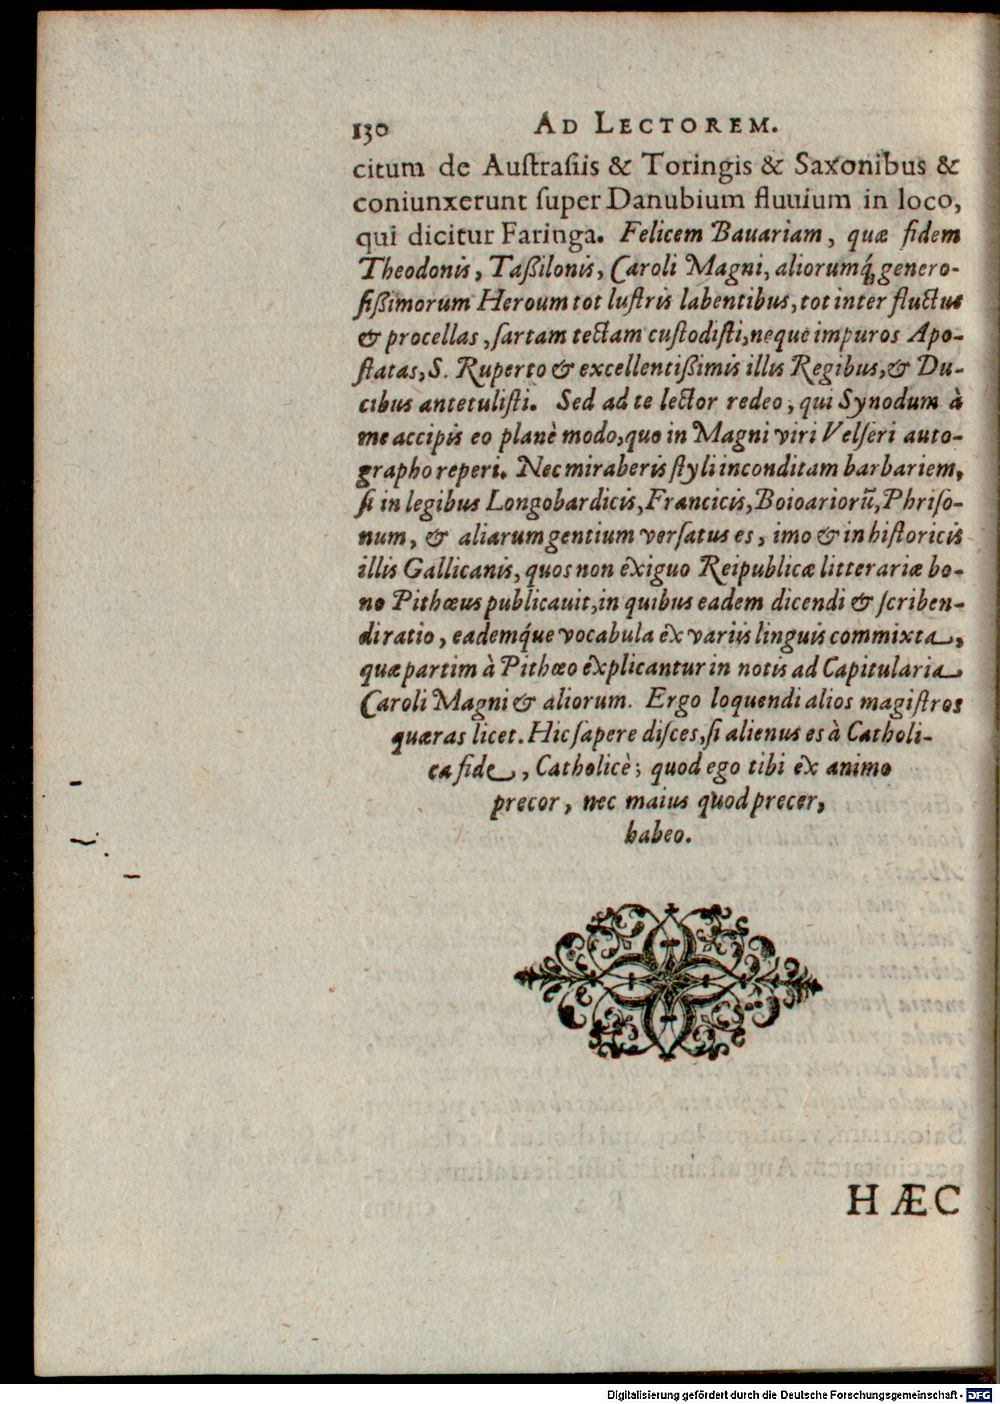 130 AD LECTOREM.
citum de Auſtraſiis & Toringis & Saxonibus &
coniunxerunt ſuper Danubium fluuium in loco,
qui dicitur Faringa. Felicem Bauariam, quæ fidem
Theodonis, Taßilonis, Caroli Magni, aliorumq́; genero-
ſißimorum Heroum tot luſtris labentibus, tot inter fluctus
& procellas, ſartam tectam cuſtodiſti, neque impuros Apo-
ſtatas, S. Ruperto & excellentißimis illis Regibus, & Du-
cibus antetuliſti. Sed ad te lector redeo, qui Synodum à
me accipis eo planè modo, quo in Magni viri Velſeri auto-
grapho reperi. Nec miraberis ſtyli inconditam barbariem,
ſi in legibus Longobardicis, Francicis, Boioariorũ, Phriſo-
num, & aliarum gentium verſatus es, imo & in hiſtoricis
illis Gallicanis, quos non exiguo Reipublicæ litterariæ bo-
no Pithœus publicauit, in quibus eadem dicendi & ſcriben-
di ratio, eademq́ue vocabula ex variis linguis commixta,
quæ partim à Pithœo explicantur in notis ad Capitularia
Caroli Magni & aliorum. Ergo loquendi alios magiſtros
quæras licet. Hic ſapere diſces, ſi alienus es à Catholi-
ca fide, Catholicè; quod ego tibi ex animo
precor, nec maius quod precer,
habeo.
HÆC
Digitalisierung gefördert durch die Deutsche Forschungsgemeinschaft - DFG